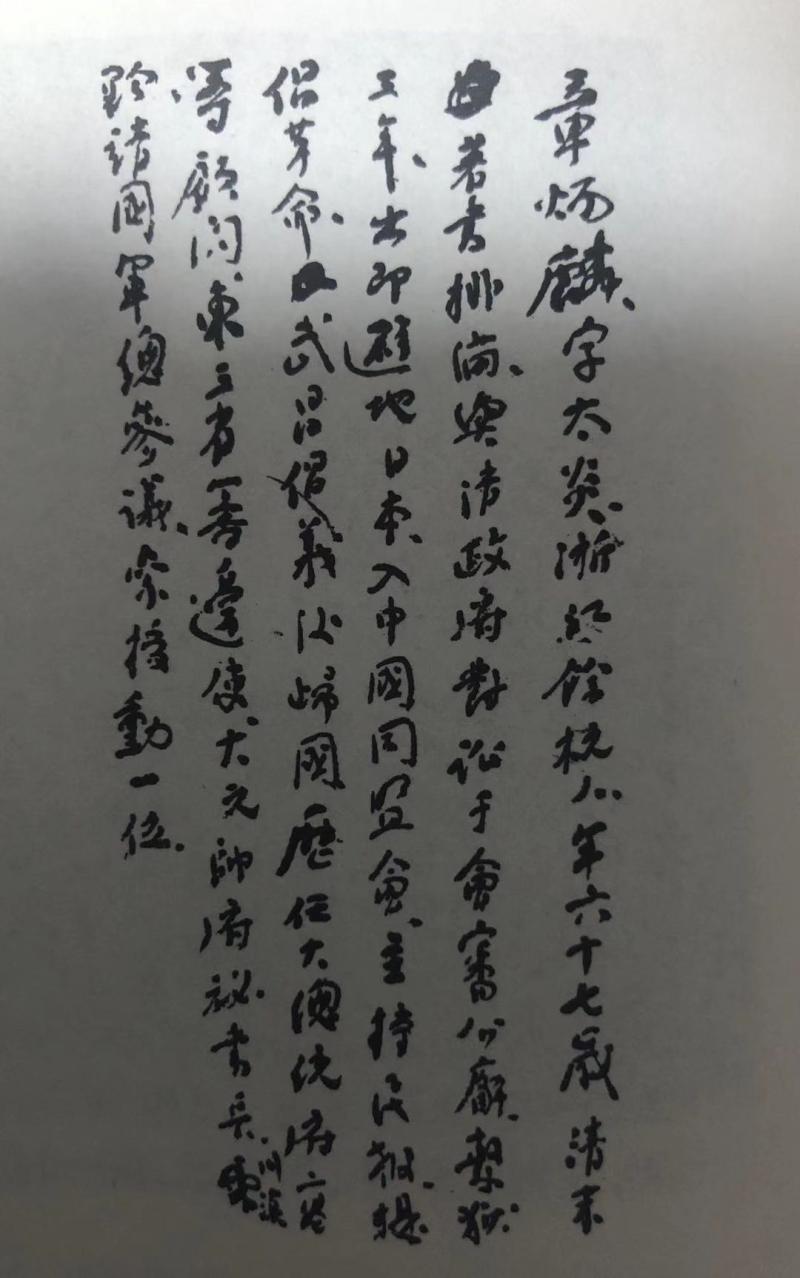 章炳麟、字太炎、浙江餘杭人、年六十七歲、清末
著書排滿、與清政府對訟于會審公廨、繫獄
三年、出即避地日本、入中國同盟會、主持民報、提
倡革命、武昌倡義後歸國、歷任大總統府高
等顧問、東三省籌邊使、大元帥府祕書長、川滇
黔靖國軍總參議、索授勳一位、